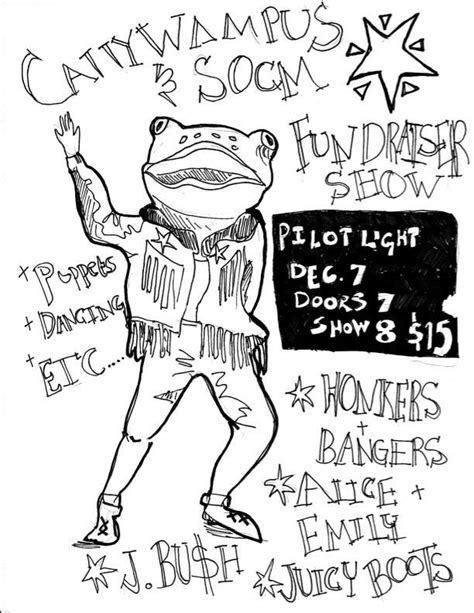 CATTYWAMPUS
& SOCM
FUNDRAISER
SHOW
PILOT LIGHT
DEC. 7
DOORS 7
SHOW 8 $15
+ PUPPETS
+ DANCING
+ ETC....
HONKERS
+
BANGERS
ALICE +
EMILY
JUICY BOOTS
J. BU$H